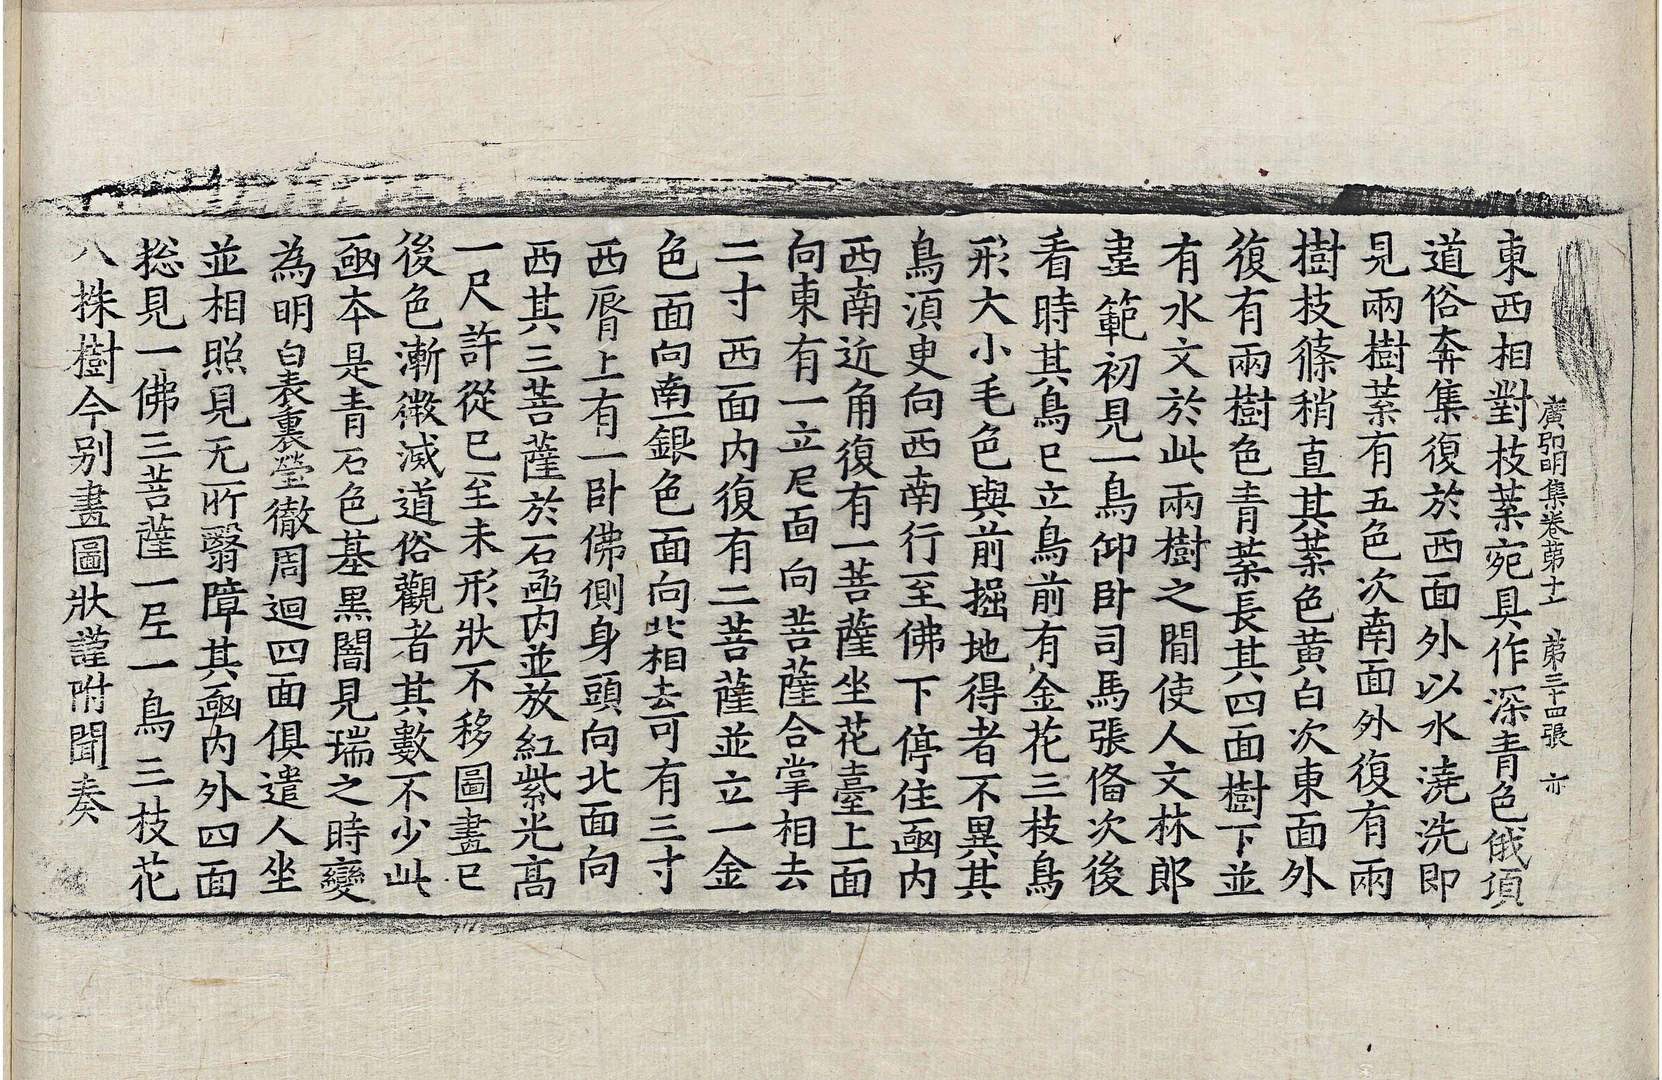 廣弘明集卷第十七　第三十四張　亦
東西相對枝葉宛具作深青色俄項
道俗奔集復於西面外以水澆洗即
見兩樹葉有五色次南面外復有兩
樹枝蓧稍直其葉色黃白次東面外
復有兩樹色青葉長其四面樹下並
有水文於此兩樹之間使人文林郎
盧範初見一鳥仰卧司馬張俻次後
看時其鳥已立鳥前有金花三枝鳥
形大小毛色與前掘地得者不異其
鳥湏吏向西南行至佛下停住凾内
西南近角復有一菩薩坐花臺上面
向東有一立尼面向菩薩合掌相去
二寸西面内復有二菩薩並立一金
色面向南一銀色面向北相去可有三寸
西脣上有一卧佛側身頭向北面向
西其三菩薩於石凾内並放紅紫光髙
一尺許從巳至未形狀不移圖畫已
後色漸微滅道俗觀者其數不少此
凾夲是青石色基黑闇見瑞之時變
為明白表裏瑩徹周迴四面俱遣人坐
並相照見无所翳障其凾内外四面
捴見一佛三菩薩一尼一鳥三枝花
八株樹今别畫圖狀謹附聞奏